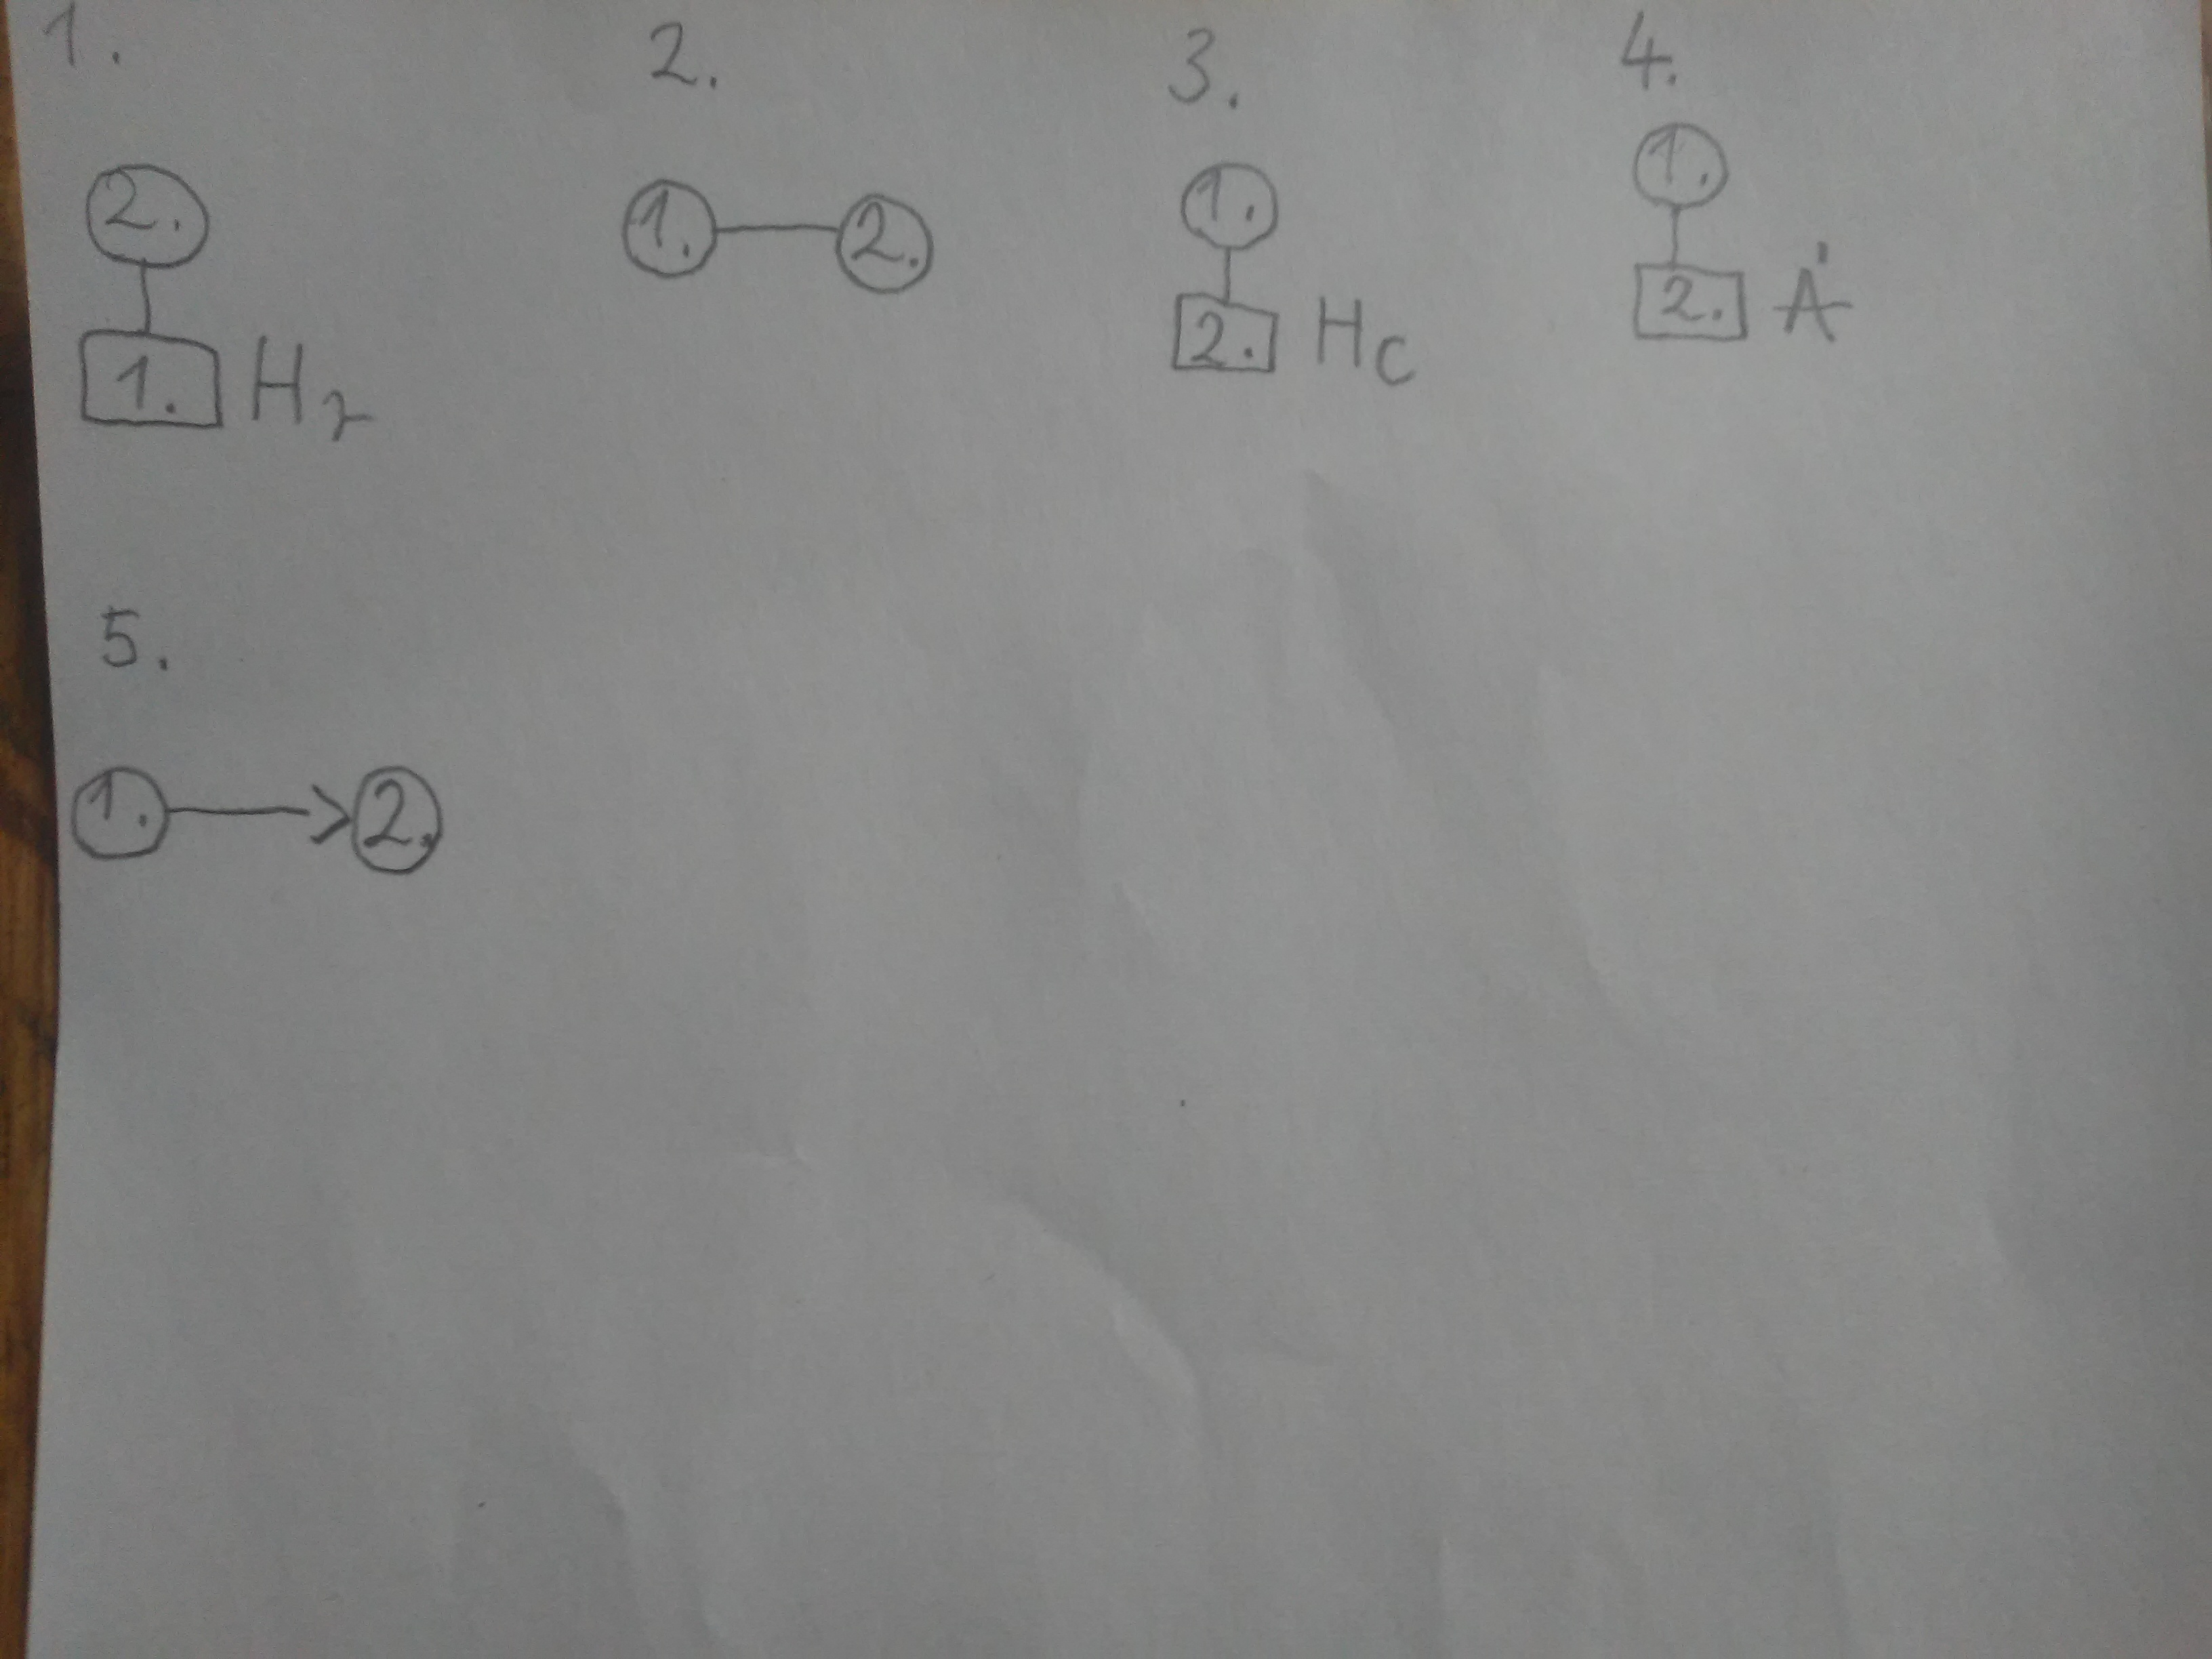 1. 2. 3. 4.
2. 1. 2. 1. 1.
1. H₂ 2. Hc 2. Á
5.
1. 2.